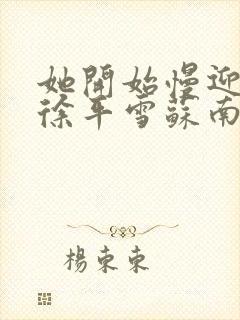 她開始慢迎
徐平雪蘇南
楊東東